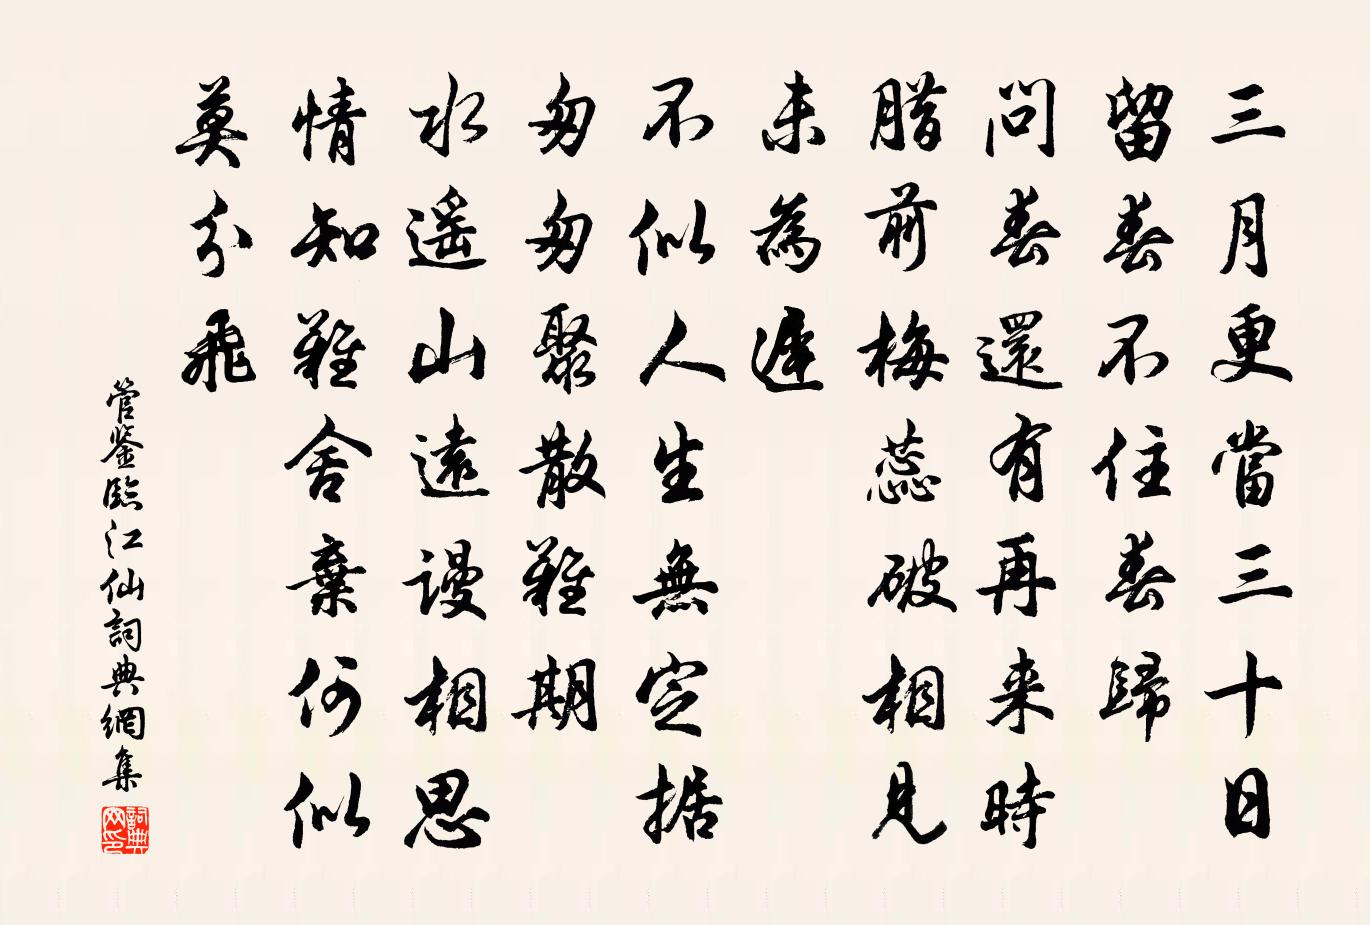 三月更當三十日
留春不住春歸
問春還有再来時
腊前梅蕊破相見
未為遲
不似人生無定据
匆匆聚散難期
水遥山遠謾相思
情知難舍棄何似
莫分飛
管鉴臨江仙詞典網集
詞典网印